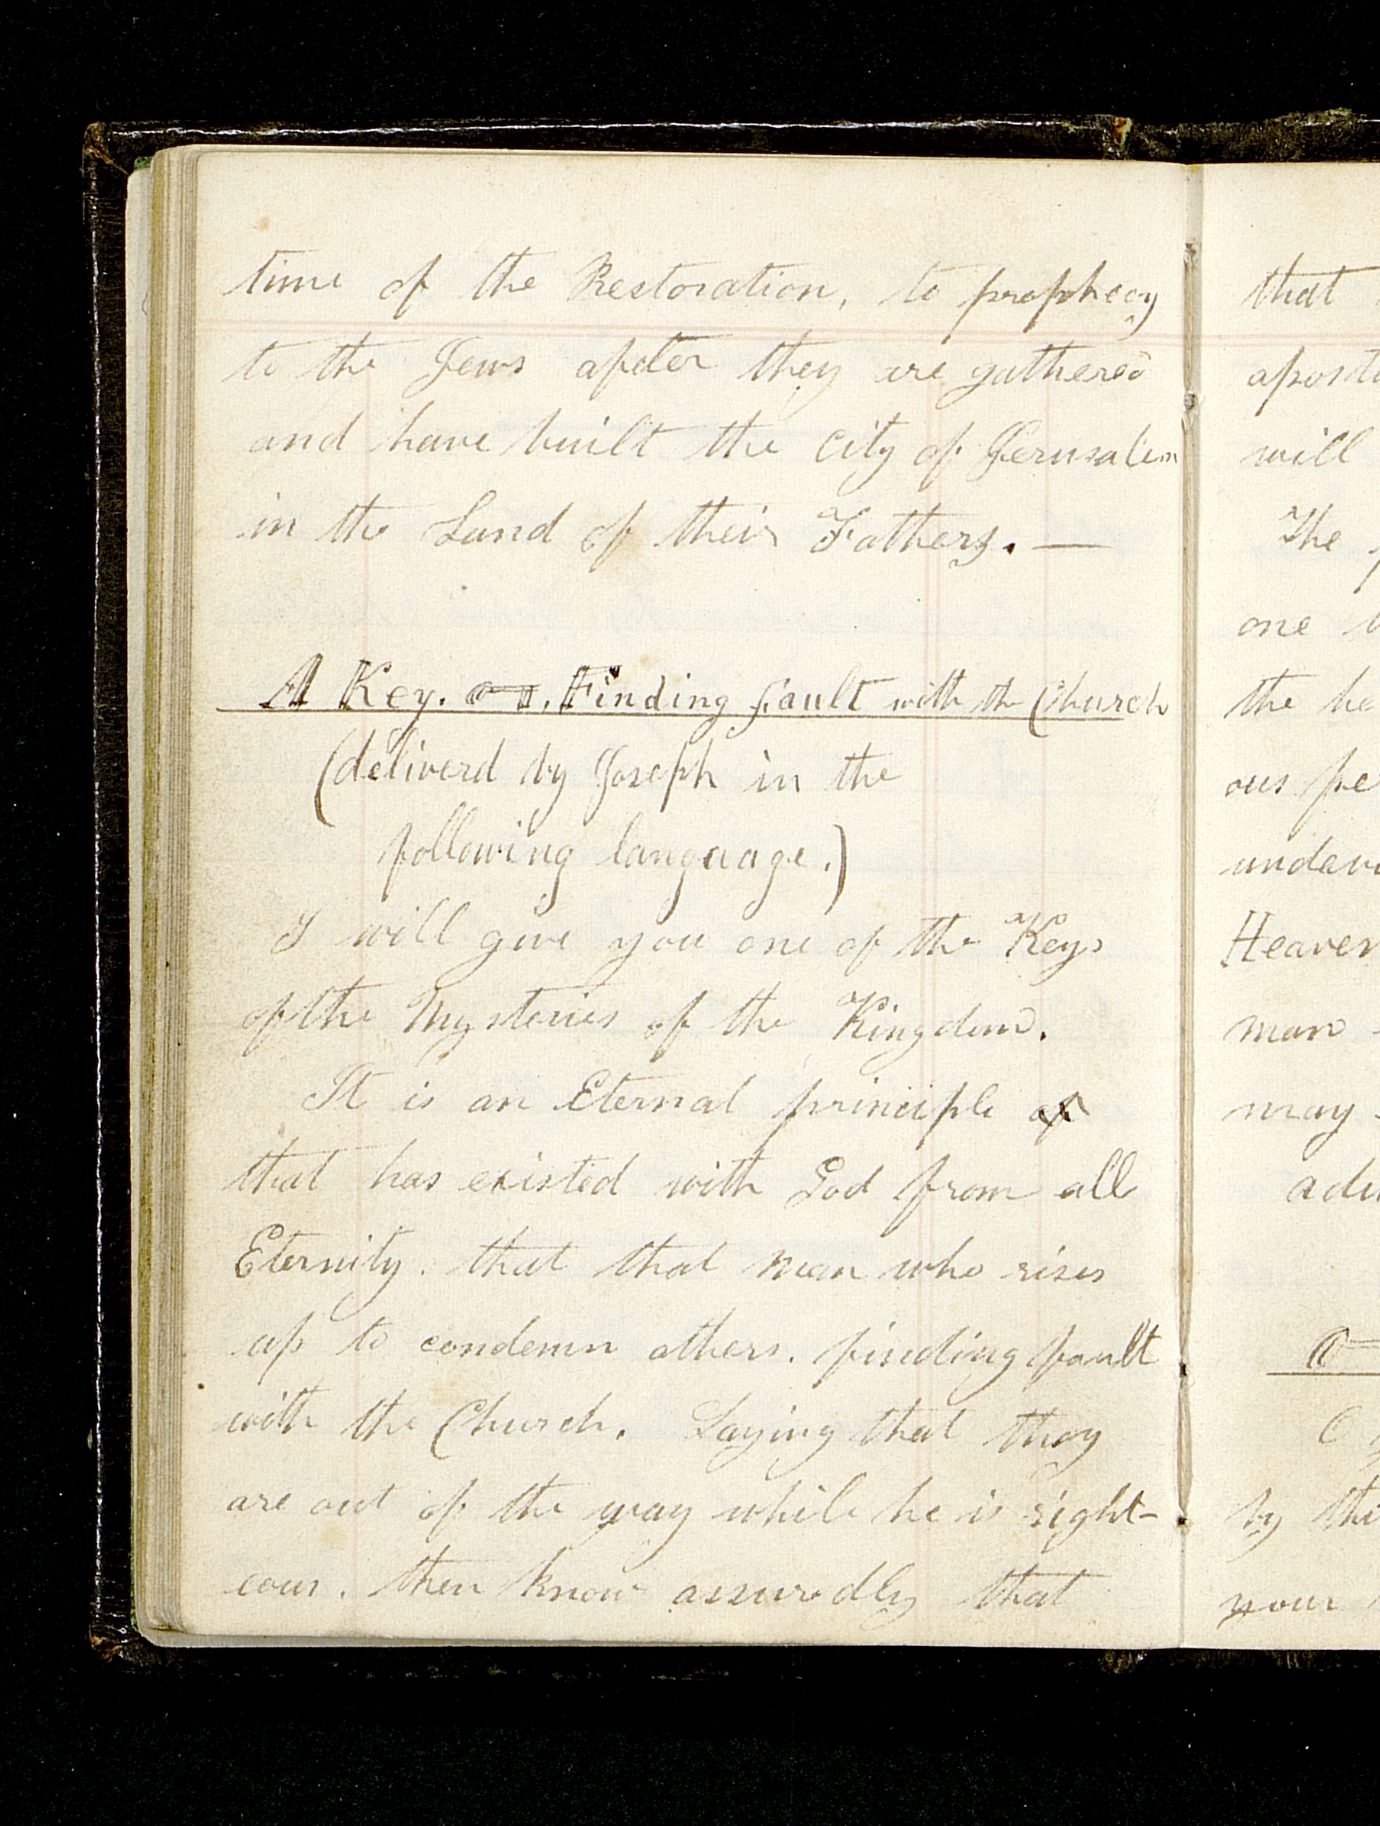 time of the Restoration, to prophecy
to the Jews after they are gathered
and have built the city of Jerusalem
in the Land of their Fathers. —
A Key. Finding fault with the Church
(deliverd by Joseph in the
following language.)
I will give you one of the Keys
of the Mysteries of the Kingdom.
It is an Eternal principle of
that has existed with God from all
Eternity. that that man who rises
up to condemn others. finding fault
with the Church. Saying that they
are out of the way while he is right-
eous. then know assuredly that
that
will
The
one
the
ous
Heaven
man
may
by
your